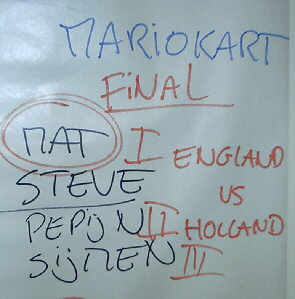 MARIOKART
FINAL
MAT I ENGLAND
STEVE VS
PEPIJN II HOLLAND
SIJMEN III